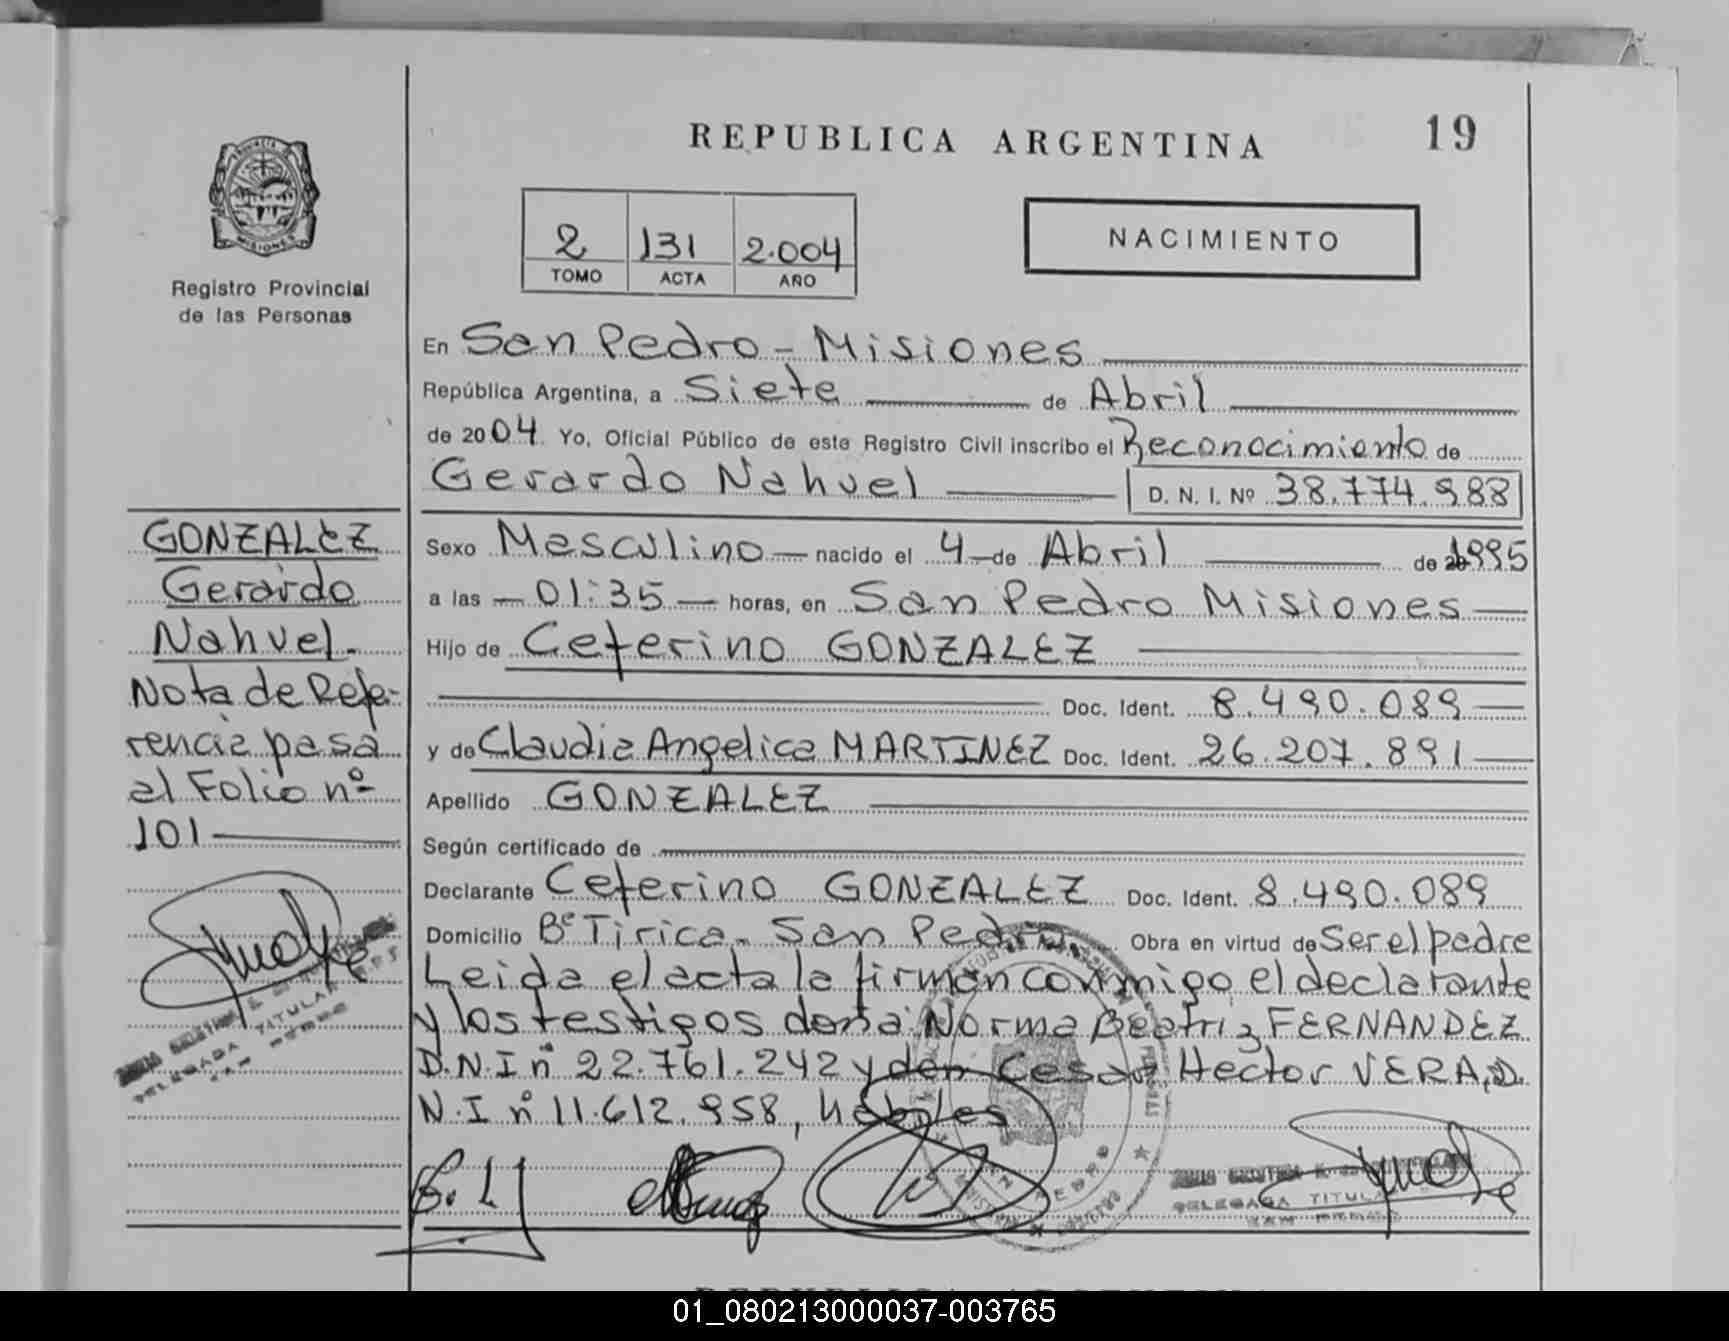 REPUBLICA ARGENTINA
19
PROVINCIA DE
MISIONES
Registro Provincial
de las Personas
2 131 2.004
TOMO ACTA AÑO
NACIMIENTO
En San Pedro - Misiones
República Argentina, a Siete de Abril
de 2004 Yo, Oficial Público de este Registro Civil inscribo el Reconocimiento de
Gerardo Nahuel D. N. I. Nº 38.774.988
Sexo Masculino nacido el 4 de Abril de 1995
a las 01:35 horas, en San Pedro Misiones
Hijo de Ceferino GONZALEZ
Doc. Ident. 8.490.089
y de Claudia Angelica MARTINEZ Doc. Ident. 26.207.891
Apellido GONZALEZ
Según certificado de
Declarante Ceferino GONZALEZ Doc. Ident. 8.490.089
Domicilio Bº Tirica - San Pedro Obra en virtud de Ser el padre
Leida el acta la firman conmigo el declarante
y los testigos doña Norma Beatriz FERNANDEZ
D.N.I nº 22.761.242 y don Cesar Hector VERA, D.
N.I nº 11.612.958, hábiles
GONZALEZ
Gerardo
Nahuel.
Nota de Refe-
rencia pasa
al Folio nº
101
DELEGADA TITULAR
SAN PEDRO
DELEGADA TITULAR
SAN PEDRO
01_080213000037-003765